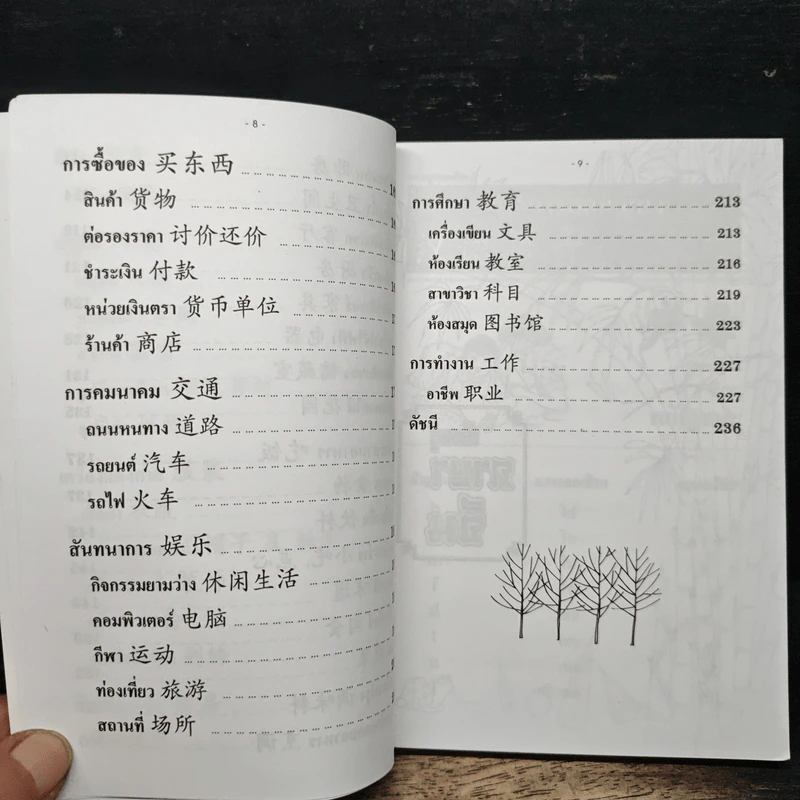 - 8 -
การซื้อของ 买东西
สินค้า 货物
ต่อรองราคา 讨价还价
ชำระเงิน 付款
หน่วยเงินตรา 货币单位
ร้านค้า 商店
การคมนาคม 交通
ถนนหนทาง 道路
รถยนต์ 汽车
รถไฟ 火车
สันทนาการ 娱乐
กิจกรรมยามว่าง 休闲生活
คอมพิวเตอร์ 电脑
กีฬา 运动
ท่องเที่ยว 旅游
สถานที่ 场所
- 9 -
การศึกษา 教育 213
เครื่องเขียน 文具 213
ห้องเรียน 教室 216
สาขาวิชา 科目 219
ห้องสมุด 图书馆 223
การทำงาน 工作 227
อาชีพ 职业 227
ดัชนี 236